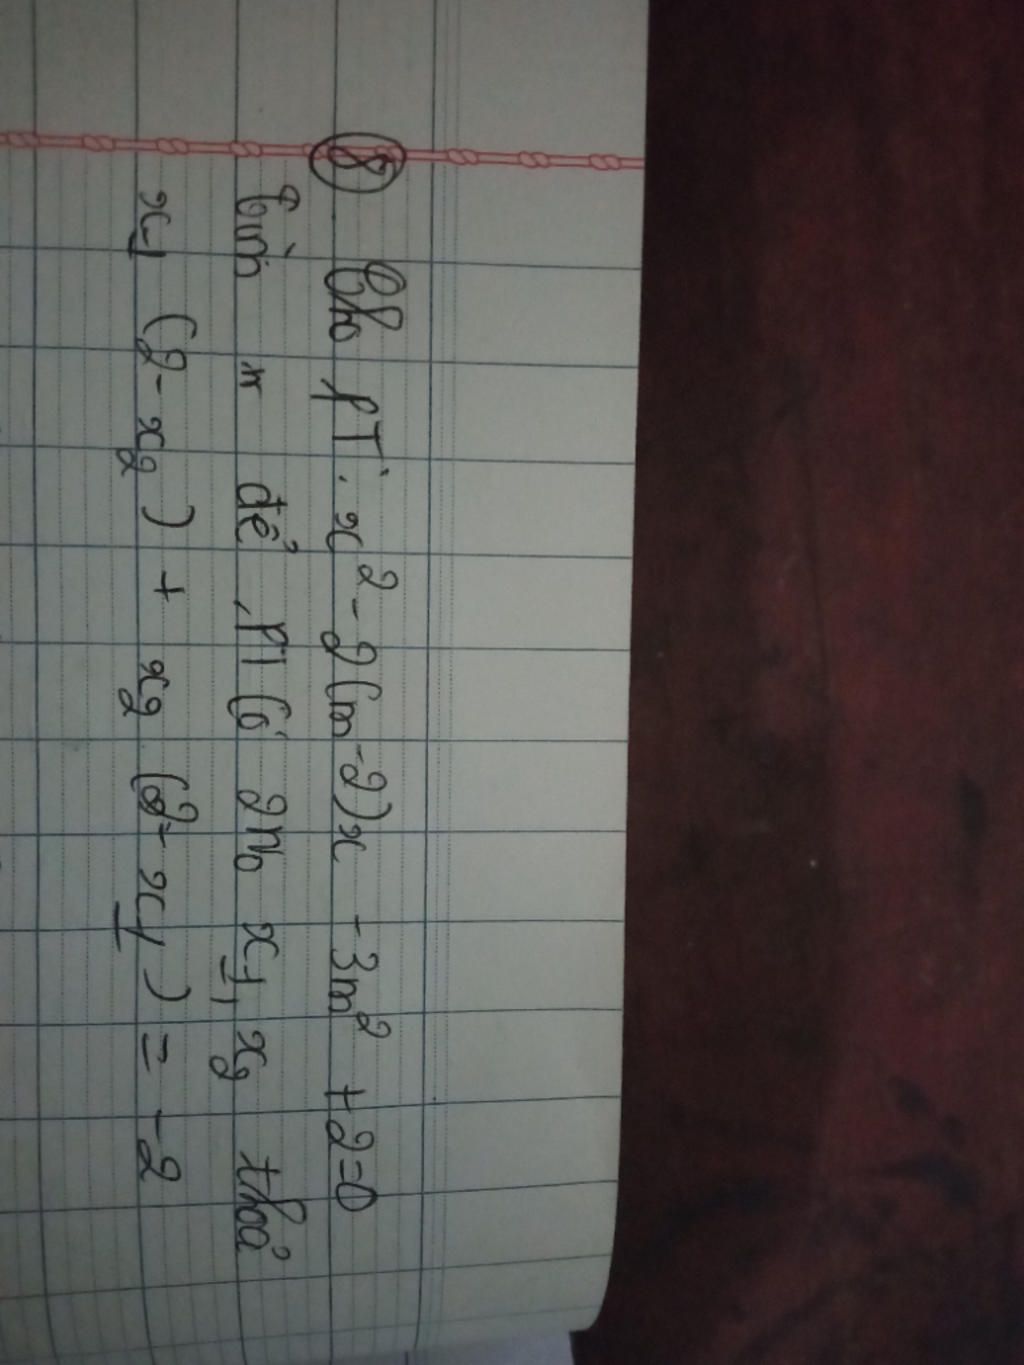 ⑧ Cho PT: x² - 2(m-2)x - 3m² + 2 = 0
tìm m để PT có 2 no x₁, x₂ thoả
x₁ (2 - x₂) + x₂ (2 - x₁) = -2